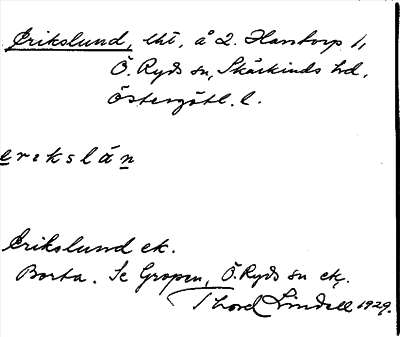 Erikslund, lht, å 2. Harstorp 1,
Ö. Ryds sn, Skärkinds hd,
Östergötl. l.
erekslán
Erikslund ek.
Borta. Se Gropen, Ö. Ryds sn ek.
Thord Lindell 1929.